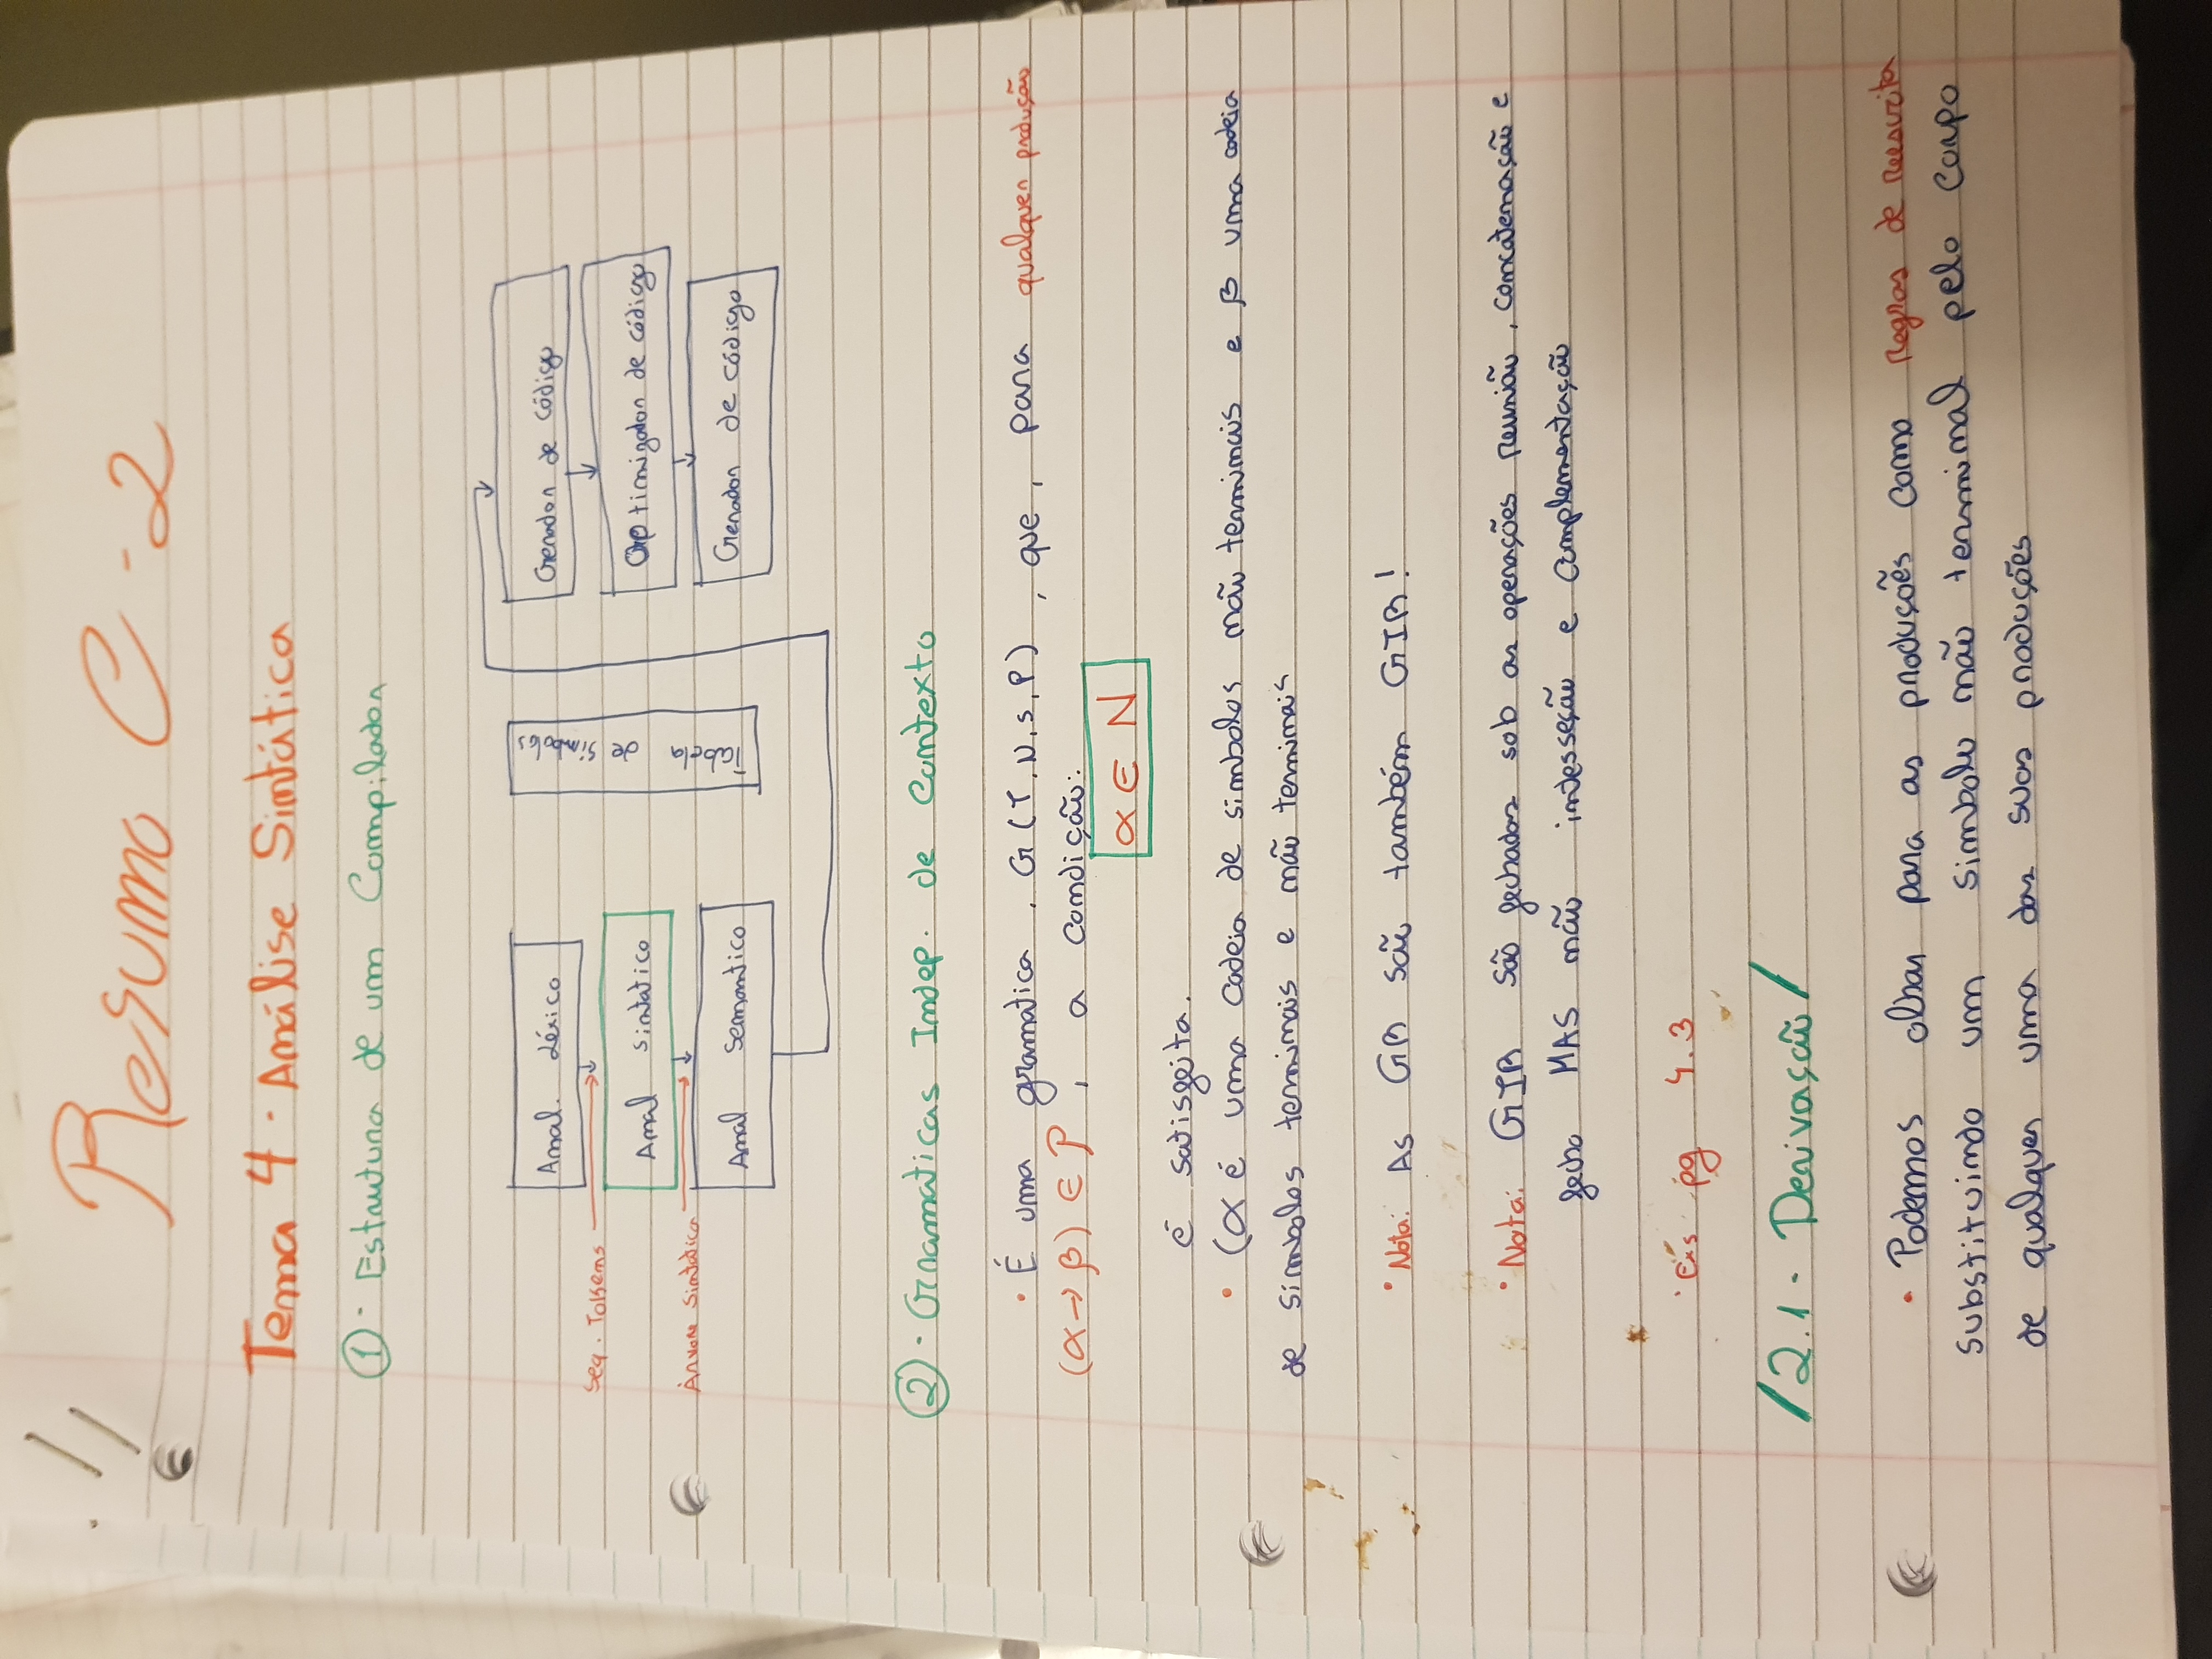 Resumo C-2
Tema 4 · Análise Sintática
① · Estrutura de um Compilador
Anal. Léxico
Seq. Tokens
Anal sintatico
Árvore Sintática
Anal Semantico
Tabela de Simbolos
Gerador de código
Optimizador de código
Gerador de código
② · Gramaticas Indep. de Contexto
• É uma gramatica, G(T,N,S,P), que, para qualquer produção
(α→β) ∈ P, a condição:
α ∈ N
é satisfeita.
• (α é uma cadeia de simbolos não terminais e β uma cadeia
de simbolos terminais e não terminais
• Nota: As GR são também GIR!
• Nota: GIR são fechados sob as operações reunião, concatenação e
fecho MAS não intesseção e complementação
· Exs pg 4.3
/2.1 · Derivação/
• Podemos olhar para as produções como Regras de Reescrita
substituindo um simbolo não terminal pelo corpo
de qualquer uma das suas produções